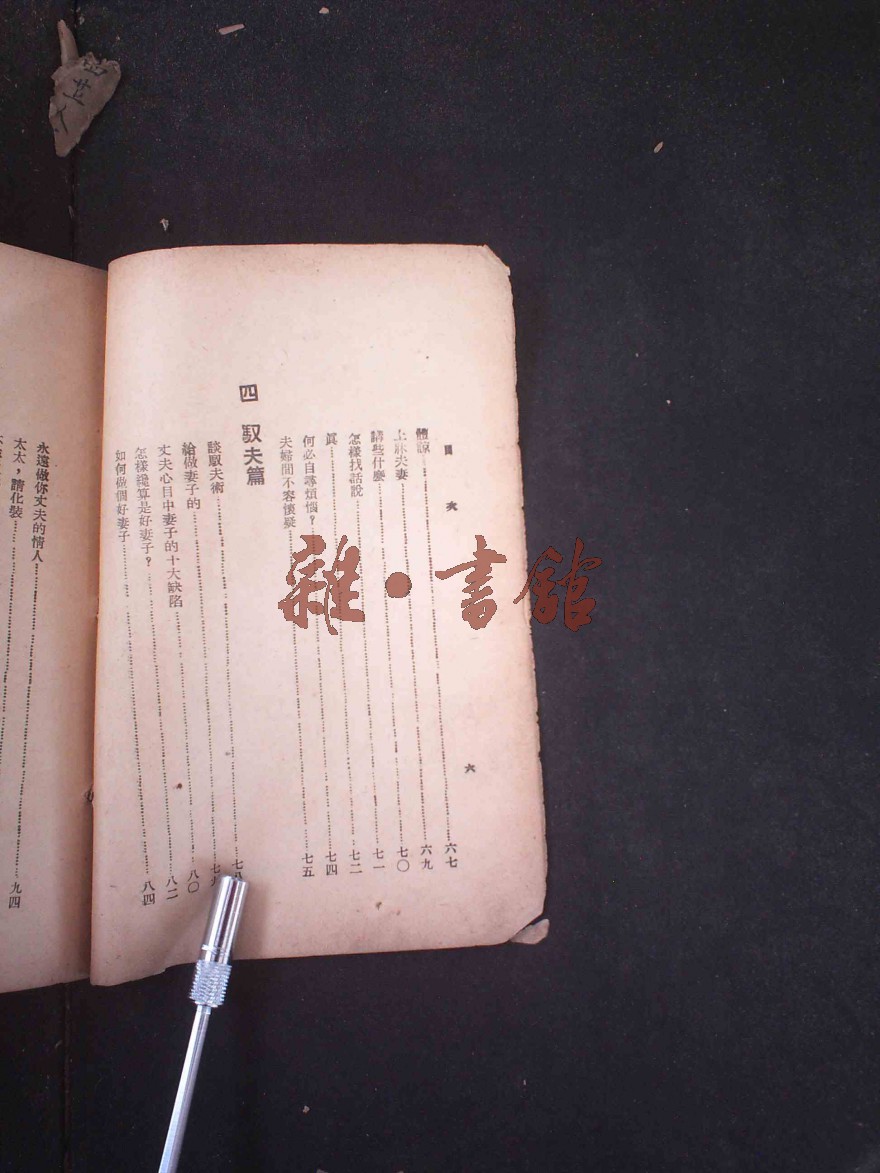 目 次
六
體諒……六七
上牀夫妻……六九
講些什麼……七〇
怎樣找話說……七一
眞……七二
何必自尋煩惱?……七四
夫婦間不容懷疑……七五
四 馭夫篇
談馭夫術……七八
給做妻子的……七九
丈夫心目中妻子的十大缺陷……八〇
怎樣纔算是好妻子?……八二
如何做個好妻子……八四
永遠做你丈夫的情人……九四
太太,請化裝……
雜·書館